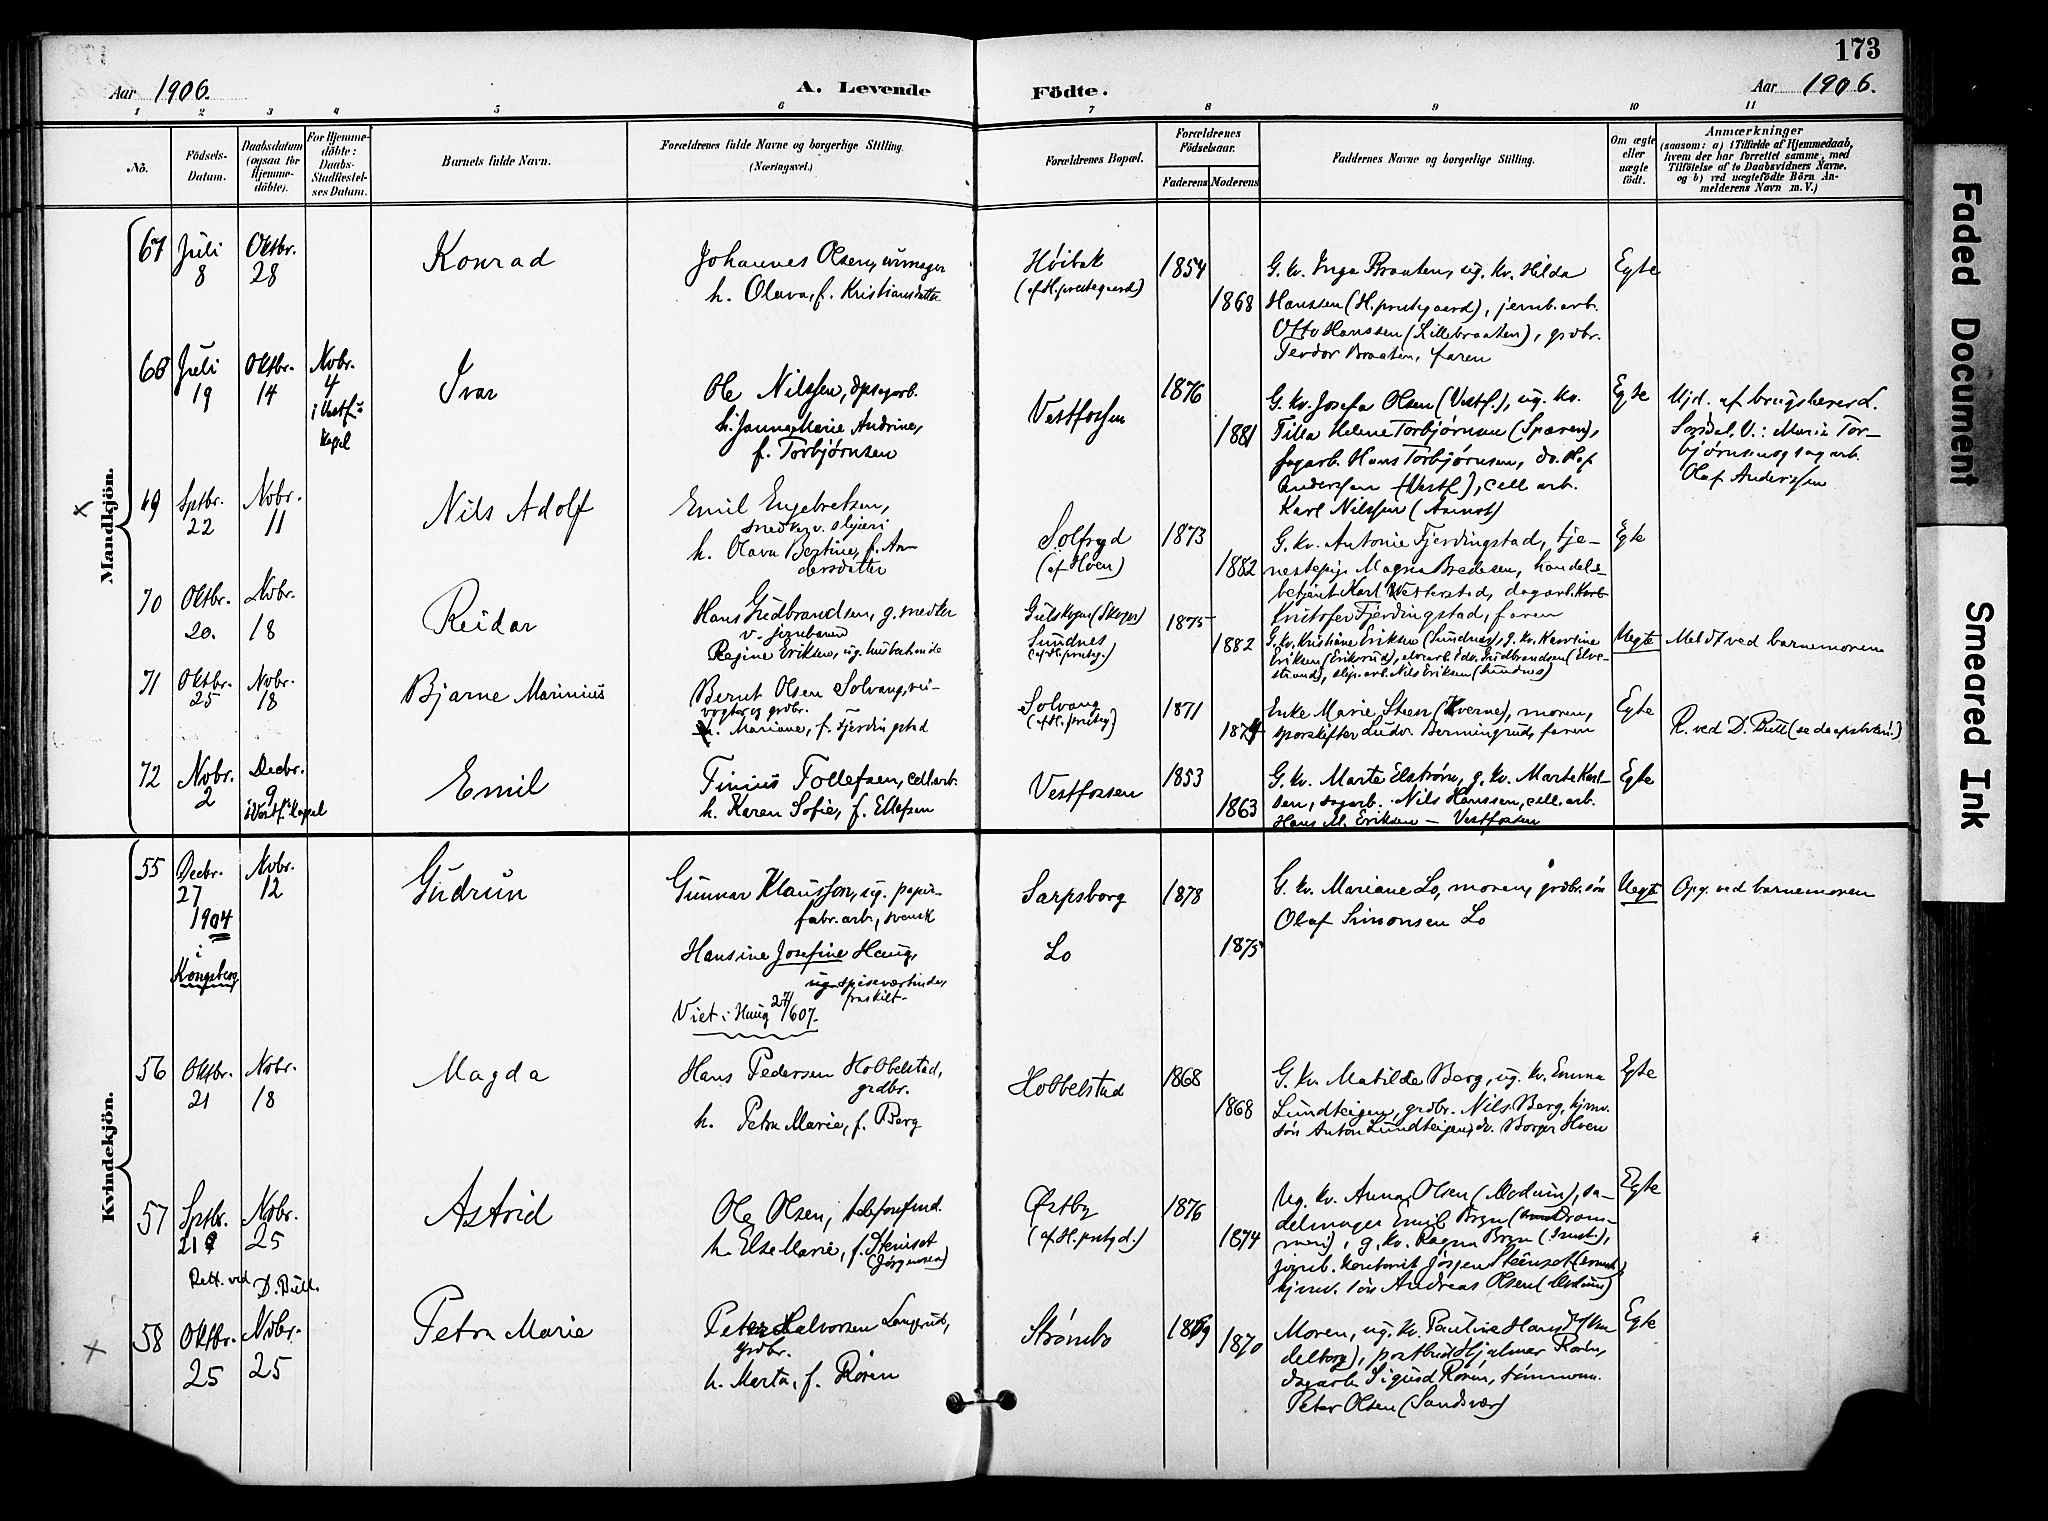 173
Aar 1906.
A. Levende Födte.
Aar 1906.
1 2 3 4 5 6 7 8 9 10 11
No.
Födsels-Datum.
Daabsdatum (ogsaa for Hjemme-döbte).
For Hjemme-döbte: Daabs-Stadfæstel-ses Datum.
Barnets fulde Navn.
Forældrenes fulde Navne og borgerlige Stilling. (Næringsvei.)
Forældrenes Bopæl.
Forældrenes Födselsaar.
Faderens Moderens
Faddernes Navne og borgerlige Stilling.
Om ægte eller uægte födt.
Anmærkninger
(saasom: a) i Tilfælde af Hjemmedaab, hvem der har forrettet samme, med Tilföielse af to Daabsvidners Navne. og b) ved uægtefödte Börn An-melderens Navn m. V.)
Mandkjön.
67 Juli 8 Oktbr. 28
Konrad
Johannes Olsen,
h. Olava, f. Kristiansdatter
Høibak
(af H.prestegaard)
1854
1868
G. kv. Inga Braaten, ug. kv. Hilda
Hanssen (H.prestegaard), jernb.arb.
Otto Hanssen (Lillebraaten), grdbr.
Teodor Braaten, faren
Egte
68 Juli 19 Oktbr. 14 Nvbr. 4 i Vestf. Kapel
Ivar
Ole Nilssen,
h. Janna Marie Andrine,
f. Torbjørnsen
Vestfossen
1876
1881
G. kv. Josefa Olsen (Vestf.), ug. kv.
Tilla Helene Torbjørnsen (Spæren),
sagarb. Hans Torbjørnsen, do. Olaf
Anderssen (Vestf.), cell.arb.
Karl Nilssen (Aamot)
Egte
Hjd. af
V.: Marie Tor-
bjørnsen og sagarb.
Olaf Anderssen
69 Sptbr. 22 Nvbr. 11
Nils Adolf
Emil Engebretsen,
snedker v.
h. Olava Bertine, f. An-
dersdatter
Solfryd
(af Hoen)
1873
1882
G. kv. Antonie Fjerdingstad, tje-
nestepige Magna Bredesen, handels-
betjent Karl Vesterstad, dagarb.
Kristofer Fjerdingstad, faren
Egte
70 Oktbr. 20. Nvbr. 18
Reidar
Hans Gudbrandsen, g. snedker
v. jernbanen
Regine Eriksen, ug.
Gulskogen (Skoger)
Sundnes
(af H.presteg.)
1875
1882
G. kv. Kristiane Eriksen (Sundnes), g. kv. Karoline
Eriksen (Eriksrud), elvearb. Edv. Gudbrandsen (Elve-
strand), slip.arb. Nils Eriksen (Sundnes)
Uegte
Meldt ved barnemoren
71 Oktbr. 25 Nvbr. 18
Bjarne Marinius
Bernt Olsen Solvang, vei-
vogter og grdbr.
h. Mariane, f. Fjerdingstad
Solvang
(af H.presteg)
1871
1874
Enke Marie Steen (Kverne), moren,
sporskifter Ludv. Bermingrud, faren
Egte
R. ved D. Bull (se daapsattest!)
72 Nvbr. 2 Decbr. 9 i Vestf. Kapel
Emil
Tinius Tollefsen, cell.arb.
h. Karen Sofie, f. Ellefsen
Vestfossen
1853
1863
G. kv. Marte Elstrøm, g. kv. Marte Karl-
sen, sagarb. Nils Hanssen, cell.arb.
Hans M. Eriksen — Vestfossen
Egte
Kvindekjön.
55 Decbr. 27 1904 i Kongsberg Nvbr. 12
Gudrun
Gunnar Klausson, ug. papir-
fabr.arb., svensk
Hansine Josefine Haug,
ug. spiseværtinde,
fraskilt.
Viet i Haug 27/6 07.
Sarpsborg
Lo
1878
1875
G. kv. Mariane Lo, moren, grdbr.søn
Olaf Simonsen Lo
Uegte
Opg. ved barnemoren
56 Oktbr. 21 Nvbr. 18
Magda
Hans Pedersen Hobbelstad,
grdbr.
h. Petra Marie, f. Berg
Hobbelstad
1868
1868
G. kv. Matilde Berg, ug. kv. Emma
Lundteigen, grdbr. Nils Berg, hjmv.
søn Anton Lundteigen, do. Borger Hoen
Egte
57 Sptbr. 21 Nvbr. 25
Rett. ved D. Bull.
Astrid
Ole Olsen,
h. Else Marie, f. Stenset
(Jørgensen)
Østby
(af H.prstgd.)
1876
1874
Ug. kv. Anna Olsen (Modum), sa-
delmager Emil Bryn (Dram-
men), g. kv. Ragna Bryn,
jernb. kontorist Jørgen Steenset,
hjmv. søn Andreas Olsen (Modum)
Egte
58 Oktbr. 25 Nvbr. 25
Petra Marie
Peter Halvorsen Langrud,
grdbr.
h. Marta, f. Røren
Strømbo
1869
1870
Moren, ug. kv. Pauline Hans
postbud Hjalmar Røren,
dagarb. Sigurd Røren, tømmerm.
Peter Olsen (Sandsvær)
Egte
Faded Document
Smeared Ink